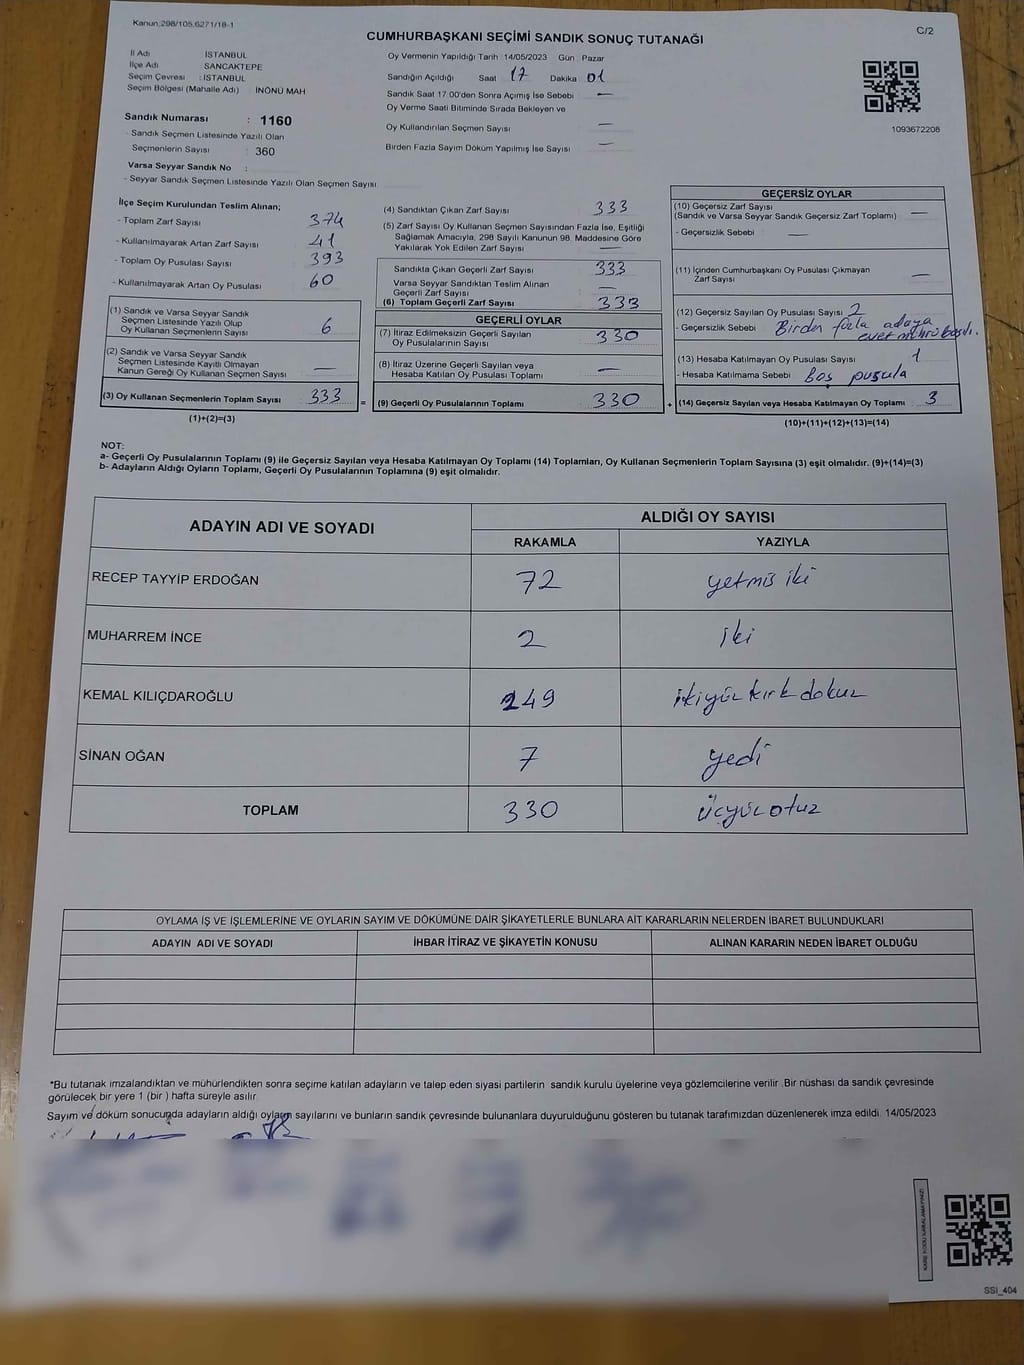 Kanun:298/105,6271/18-1
C/2
CUMHURBAŞKANI SEÇİMİ SANDIK SONUÇ TUTANAĞI
İl Adı : İSTANBUL
İlçe Adı : SANCAKTEPE
Seçim Çevresi : İSTANBUL
Seçim Bölgesi (Mahalle Adı) İNÖNÜ MAH
Sandık Numarası : 1160
- Sandık Seçmen Listesinde Yazılı Olan
Seçmenlerin Sayısı : 360
Varsa Seyyar Sandık No :
- Seyyar Sandık Seçmen Listesinde Yazılı Olan Seçmen Sayısı
Oy Vermenin Yapıldığı Tarih : 14/05/2023 Gün : Pazar
Sandığın Açıldığı Saat 17 Dakika 01
Sandık Saat 17:00'den Sonra Açımış İse Sebebi —
Oy Verme Saati Bitiminde Sırada Bekleyen ve
Oy Kullandırılan Seçmen Sayısı —
Birden Fazla Sayım Döküm Yapılmış İse Sayısı —
1093672208
İlçe Seçim Kurulundan Teslim Alınan;
- Toplam Zarf Sayısı : 374
- Kullanılmayarak Artan Zarf Sayısı : 41
- Toplam Oy Pusulası Sayısı : 393
- Kullanılmayarak Artan Oy Pusulası : 60
(1) Sandık ve Varsa Seyyar Sandık
Seçmen Listesinde Yazılı Olup
Oy Kullanan Seçmenlerin Sayısı : 6
(2) Sandık ve Varsa Seyyar Sandık
Seçmen Listesinde Kayıtlı Olmayan
Kanun Gereği Oy Kullanan Seçmen Sayısı : —
(3) Oy Kullanan Seçmenlerin Toplam Sayısı : 333 =
(1)+(2)=(3)
(4) Sandıktan Çıkan Zarf Sayısı : 333
(5) Zarf Sayısı Oy Kullanan Seçmen Sayısından Fazla İse, Eşitliği
Sağlamak Amacıyla, 298 Sayılı Kanunun 98. Maddesine Göre
Yakılarak Yok Edilen Zarf Sayısı : —
Sandıkta Çıkan Geçerli Zarf Sayısı : 333
Varsa Seyyar Sandıktan Teslim Alınan
Geçerli Zarf Sayısı : —
(6) Toplam Geçerli Zarf Sayısı : 333
GEÇERLİ OYLAR
(7) İtiraz Edilmeksizin Geçerli Sayılan
Oy Pusulalarının Sayısı : 330
(8) İtiraz Üzerine Geçerli Sayılan veya
Hesaba Katılan Oy Pusulası Toplamı : —
(9) Geçerli Oy Pusulalarının Toplamı : 330 +
GEÇERSİZ OYLAR
(10) Geçersiz Zarf Sayısı
(Sandık ve Varsa Seyyar Sandık Geçersiz Zarf Toplamı) : —
- Geçersizlik Sebebi : —
(11) İçinden Cumhurbaşkanı Oy Pusulası Çıkmayan
Zarf Sayısı : —
(12) Geçersiz Sayılan Oy Pusulası Sayısı : 2
- Geçersizlik Sebebi : Birden fazla adaya
evet mührü basılı.
(13) Hesaba Katılmayan Oy Pusulası Sayısı : 1
- Hesaba Katılmama Sebebi : Boş pusula
(14) Geçersiz Sayılan veya Hesaba Katılmayan Oy Toplamı : 3
(10)+(11)+(12)+(13)=(14)
NOT:
a- Geçerli Oy Pusulalarının Toplamı (9) ile Geçersiz Sayılan veya Hesaba Katılmayan Oy Toplamı (14) Toplamları, Oy Kullanan Seçmenlerin Toplam Sayısına (3) eşit olmalıdır. (9)+(14)=(3)
b- Adayların Aldığı Oyların Toplamı, Geçerli Oy Pusulalarının Toplamına (9) eşit olmalıdır.
ADAYIN ADI VE SOYADI ALDIĞI OY SAYISI
RAKAMLA YAZIYLA
RECEP TAYYİP ERDOĞAN 72 yetmiş iki
MUHARREM İNCE 2 iki
KEMAL KILIÇDAROĞLU 249 ikiyüz kırk dokuz
SİNAN OĞAN 7 yedi
TOPLAM 330 üçyüz otuz
OYLAMA İŞ VE İŞLEMLERİNE VE OYLARIN SAYIM VE DÖKÜMÜNE DAİR ŞİKAYETLERLE BUNLARA AİT KARARLARIN NELERDEN İBARET BULUNDUKLARI
ADAYIN ADI VE SOYADI İHBAR İTİRAZ VE ŞİKAYETİN KONUSU ALINAN KARARIN NEDEN İBARET OLDUĞU
*Bu tutanak imzalandıktan ve mühürlendikten sonra seçime katılan adayların ve talep eden siyasi partilerin sandık kurulu üyelerine veya gözlemcilerine verilir .Bir nüshası da sandık çevresinde
görülecek bir yere 1 (bir ) hafta süreyle asılır.
Sayım ve döküm sonucunda adayların aldığı oyların sayılarını ve bunların sandık çevresinde bulunanlara duyurulduğunu gösteren bu tutanak tarafımızdan düzenlenerek imza edildi. 14/05/2023
SSİ_404